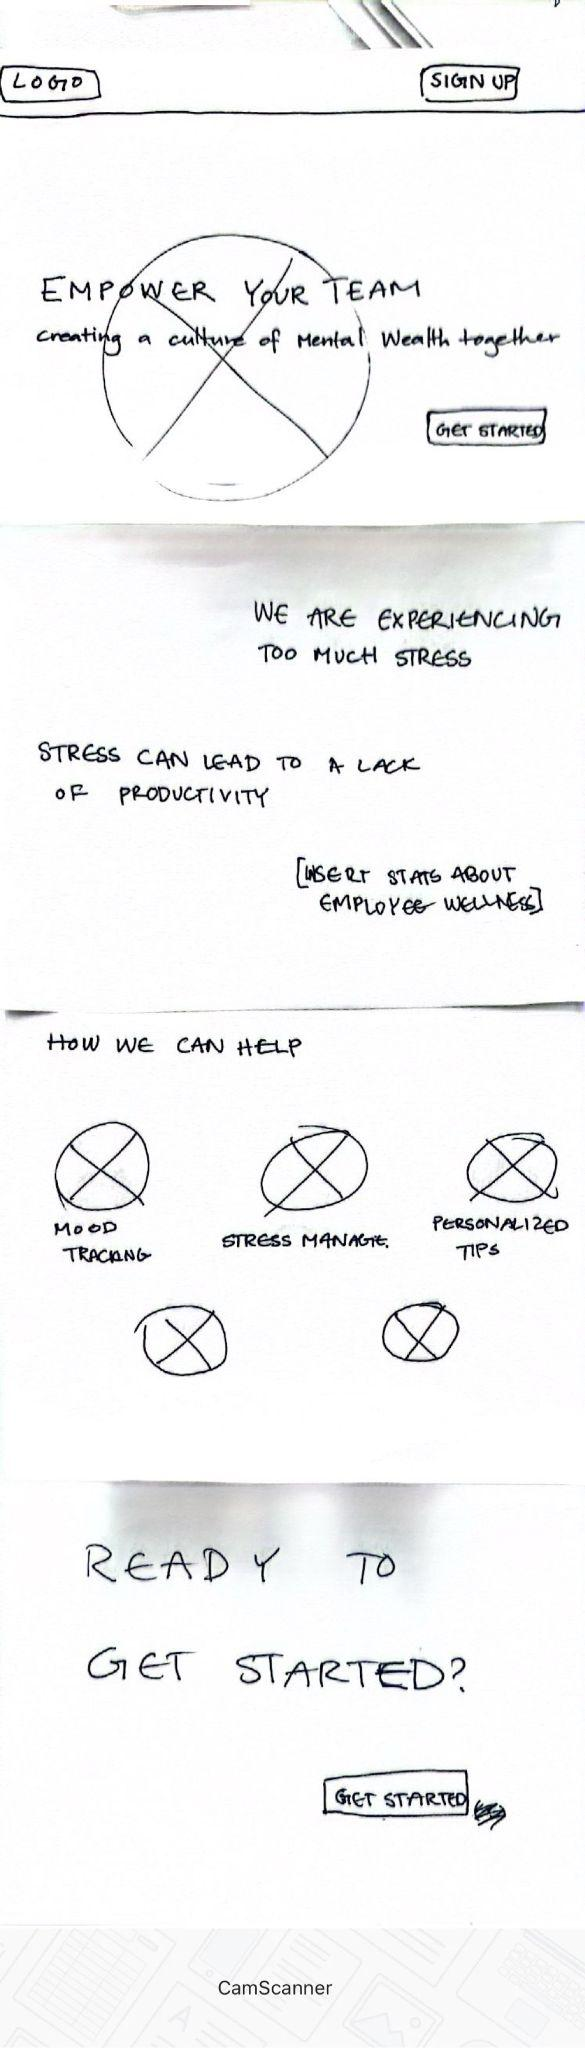 LOGO
SIGN UP
EMPOWER YOUR TEAM
Creating a culture of Mental Wealth together
GET STARTED
WE ARE EXPERIENCING
TOO MUCH STRESS
STRESS CAN LEAD TO A LACK
OF PRODUCTIVITY
[INSERT STATS ABOUT
EMPLOYEE WELLNESS]
HOW WE CAN HELP
MOOD
TRACKING
STRESS MANAGE.
PERSONALIZED
TIPS
READY TO
GET STARTED?
GET STARTED
CamScanner